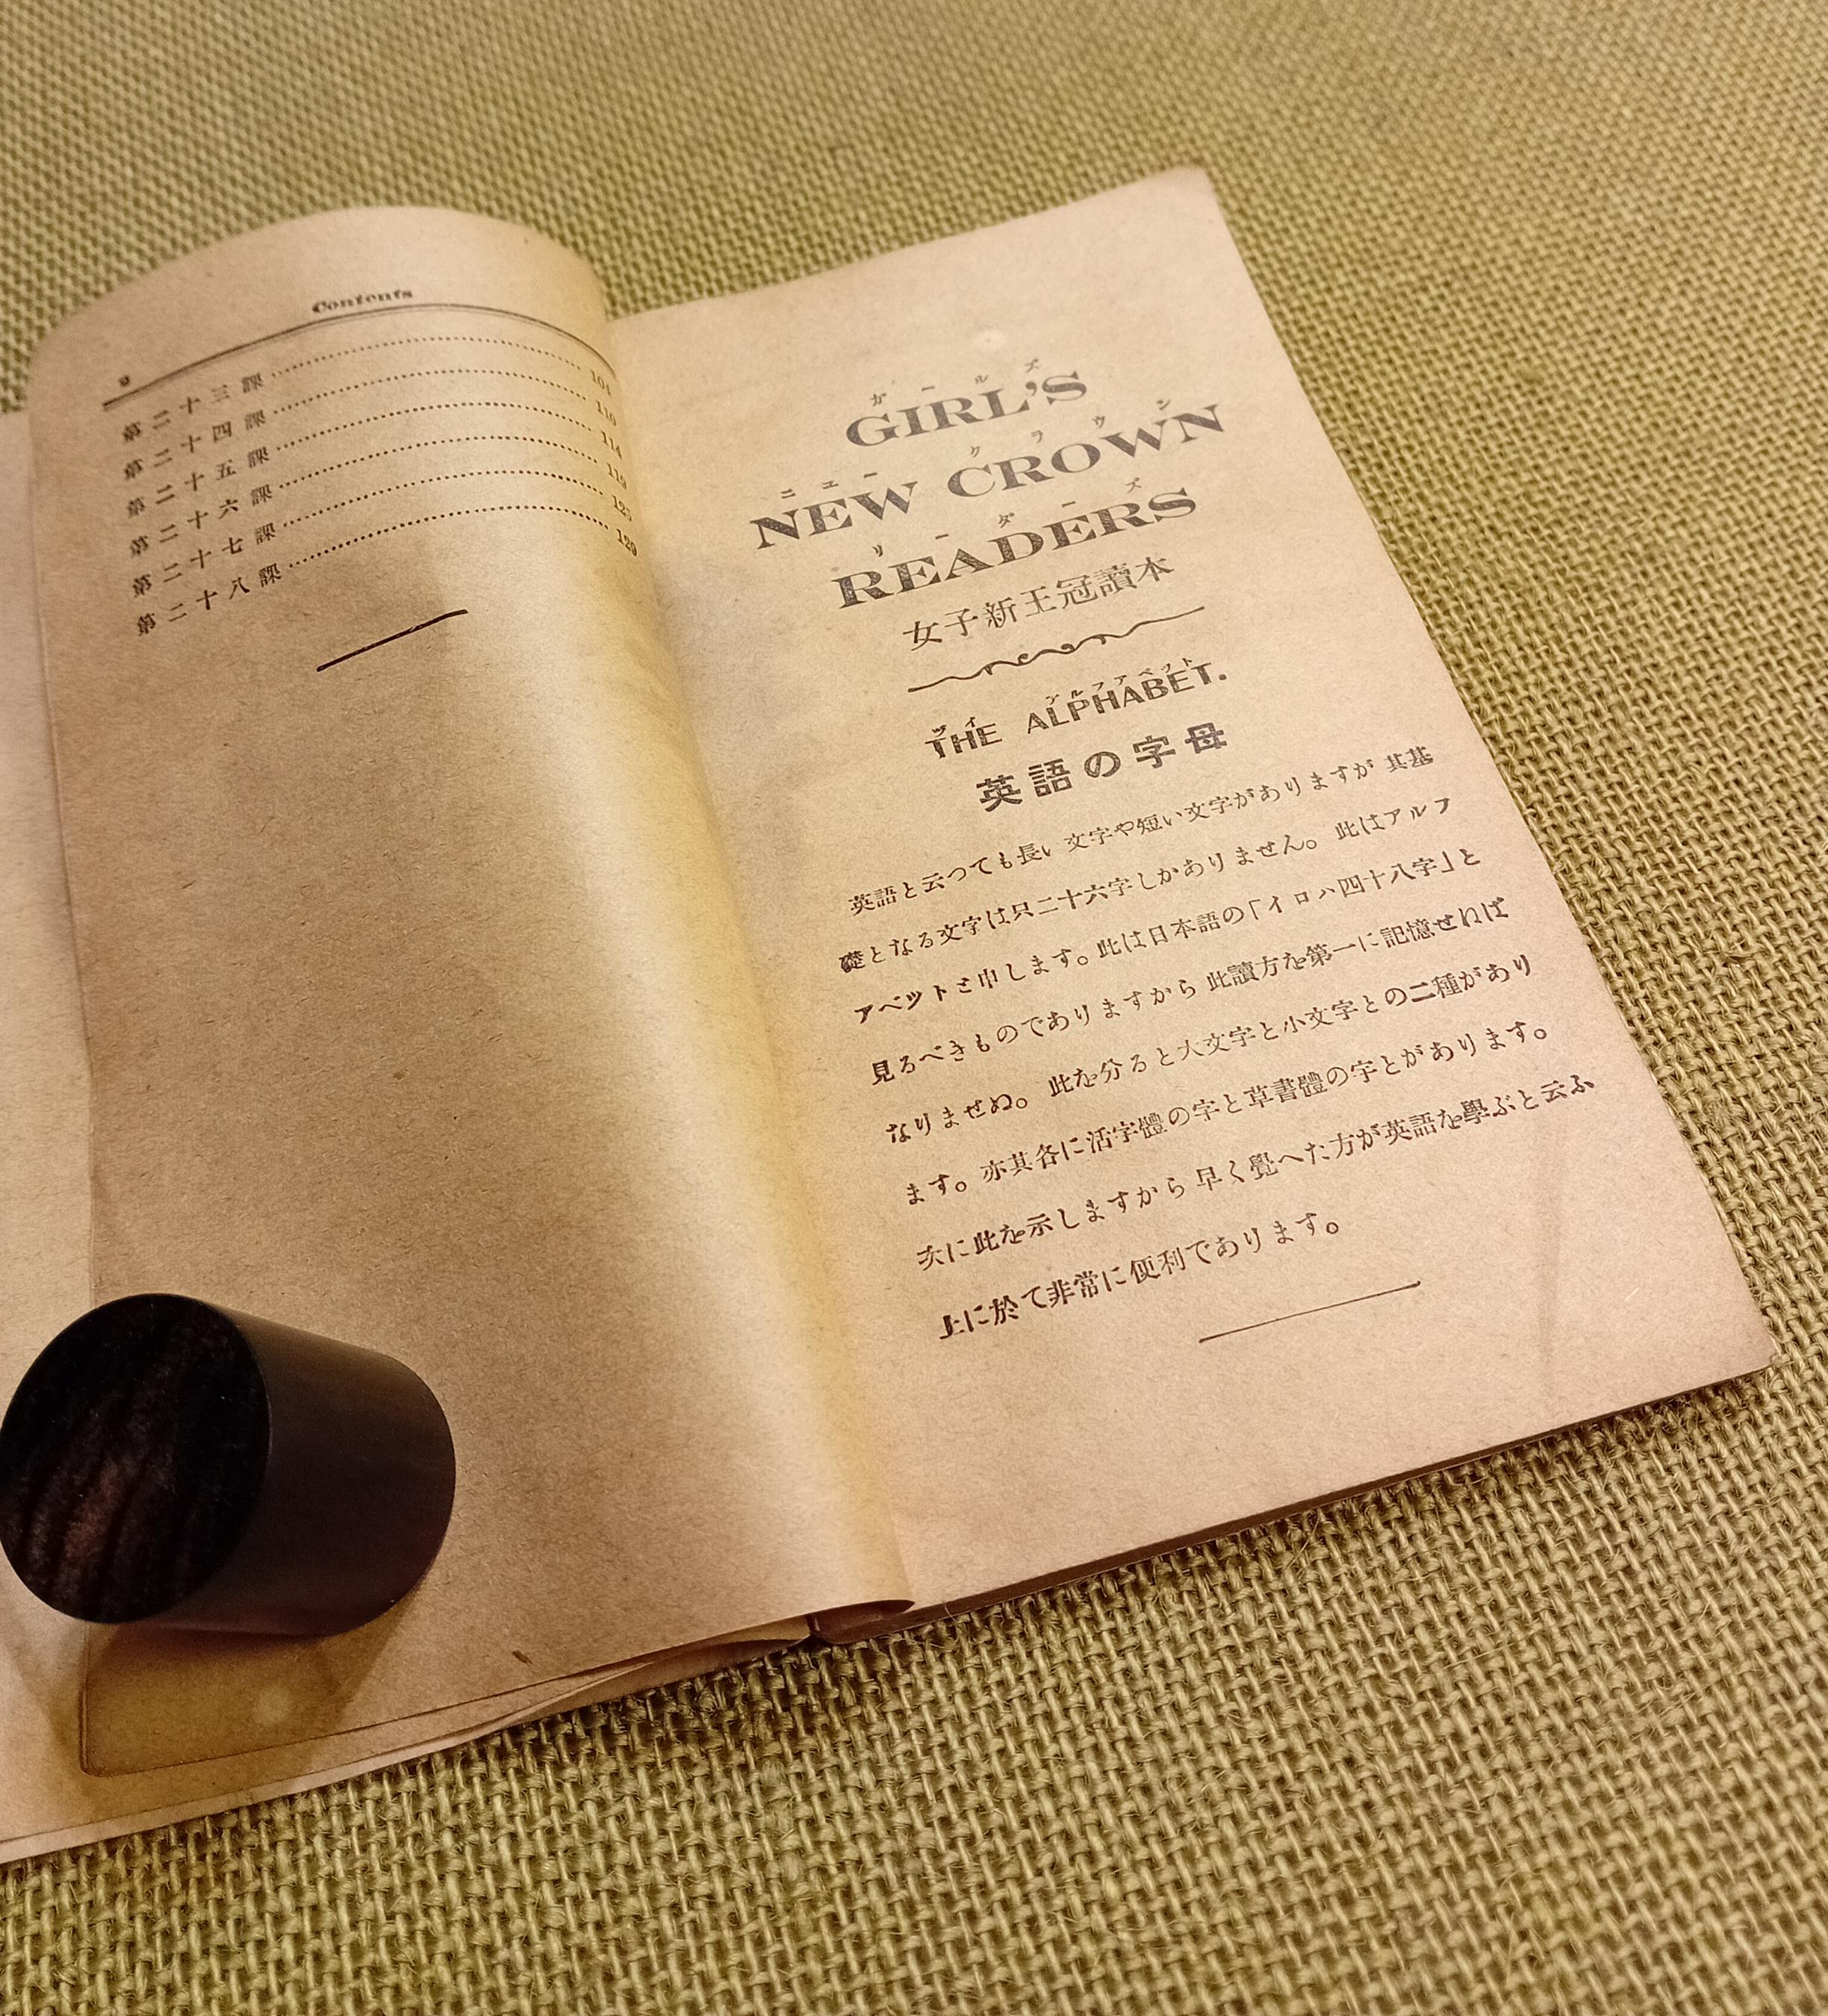 Contents
第二十三課 104
第二十四課 110
第二十五課 114
第二十六課 119
第二十七課 125
第二十八課 129
ガールズ
GIRL'S
ニユー クラウン
NEW CROWN
リーダーズ
READERS
女子新王冠讀本
アルフアベツト
THE ALPHABET.
英語の字母
英語と云つても長い文字や短い文字がありますが其基
礎となる文字は只二十六字しかありません。此はアルフ
アベツトと申します。此は日本語の「イロハ四十八字」と
見るべきものでありますから此讀方を第一に記憶せねば
なりませぬ。此を分ると大文字と小文字との二種があり
ます。亦其各に活字體の字と草書體の字とがあります。
次に此を示しますから早く覺へた方が英語を學ぶと云ふ
上に於て非常に便利であります。